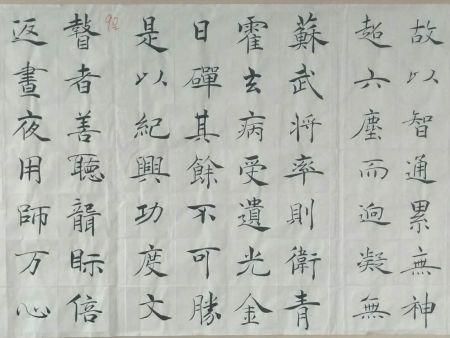 故以智通累無神
超六塵而迥凝無
蘇武將率則衛青
霍去病受遺光金
日磾其餘不可勝
是以紀興功度文
瞽者善聽聾眎倍
返晝夜用師万心